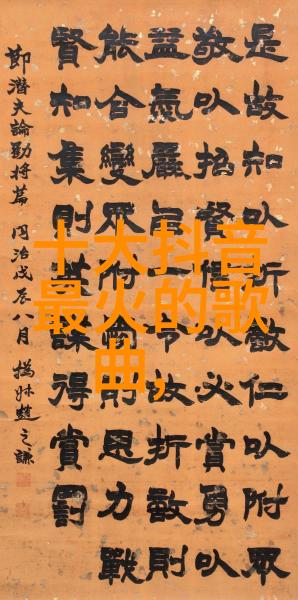 十大抖音
最火的歌
曲,
是故知以折敵仁以附眾
敬以招賢信以必賞勇以
益氣嚴以一令故折敵則
能合變眾附則思力戰
賢知集則英謀得賞罰
節潛夫論勸將篇 同治戊辰八月 撝叔趙之謙